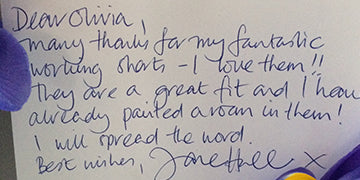 Dear Olivia,
many thanks for my fantastic
working shorts - I love them!!
They are a great fit and I have
already painted a room in them!
I will spread the word.
Best wishes, Jane Hall x